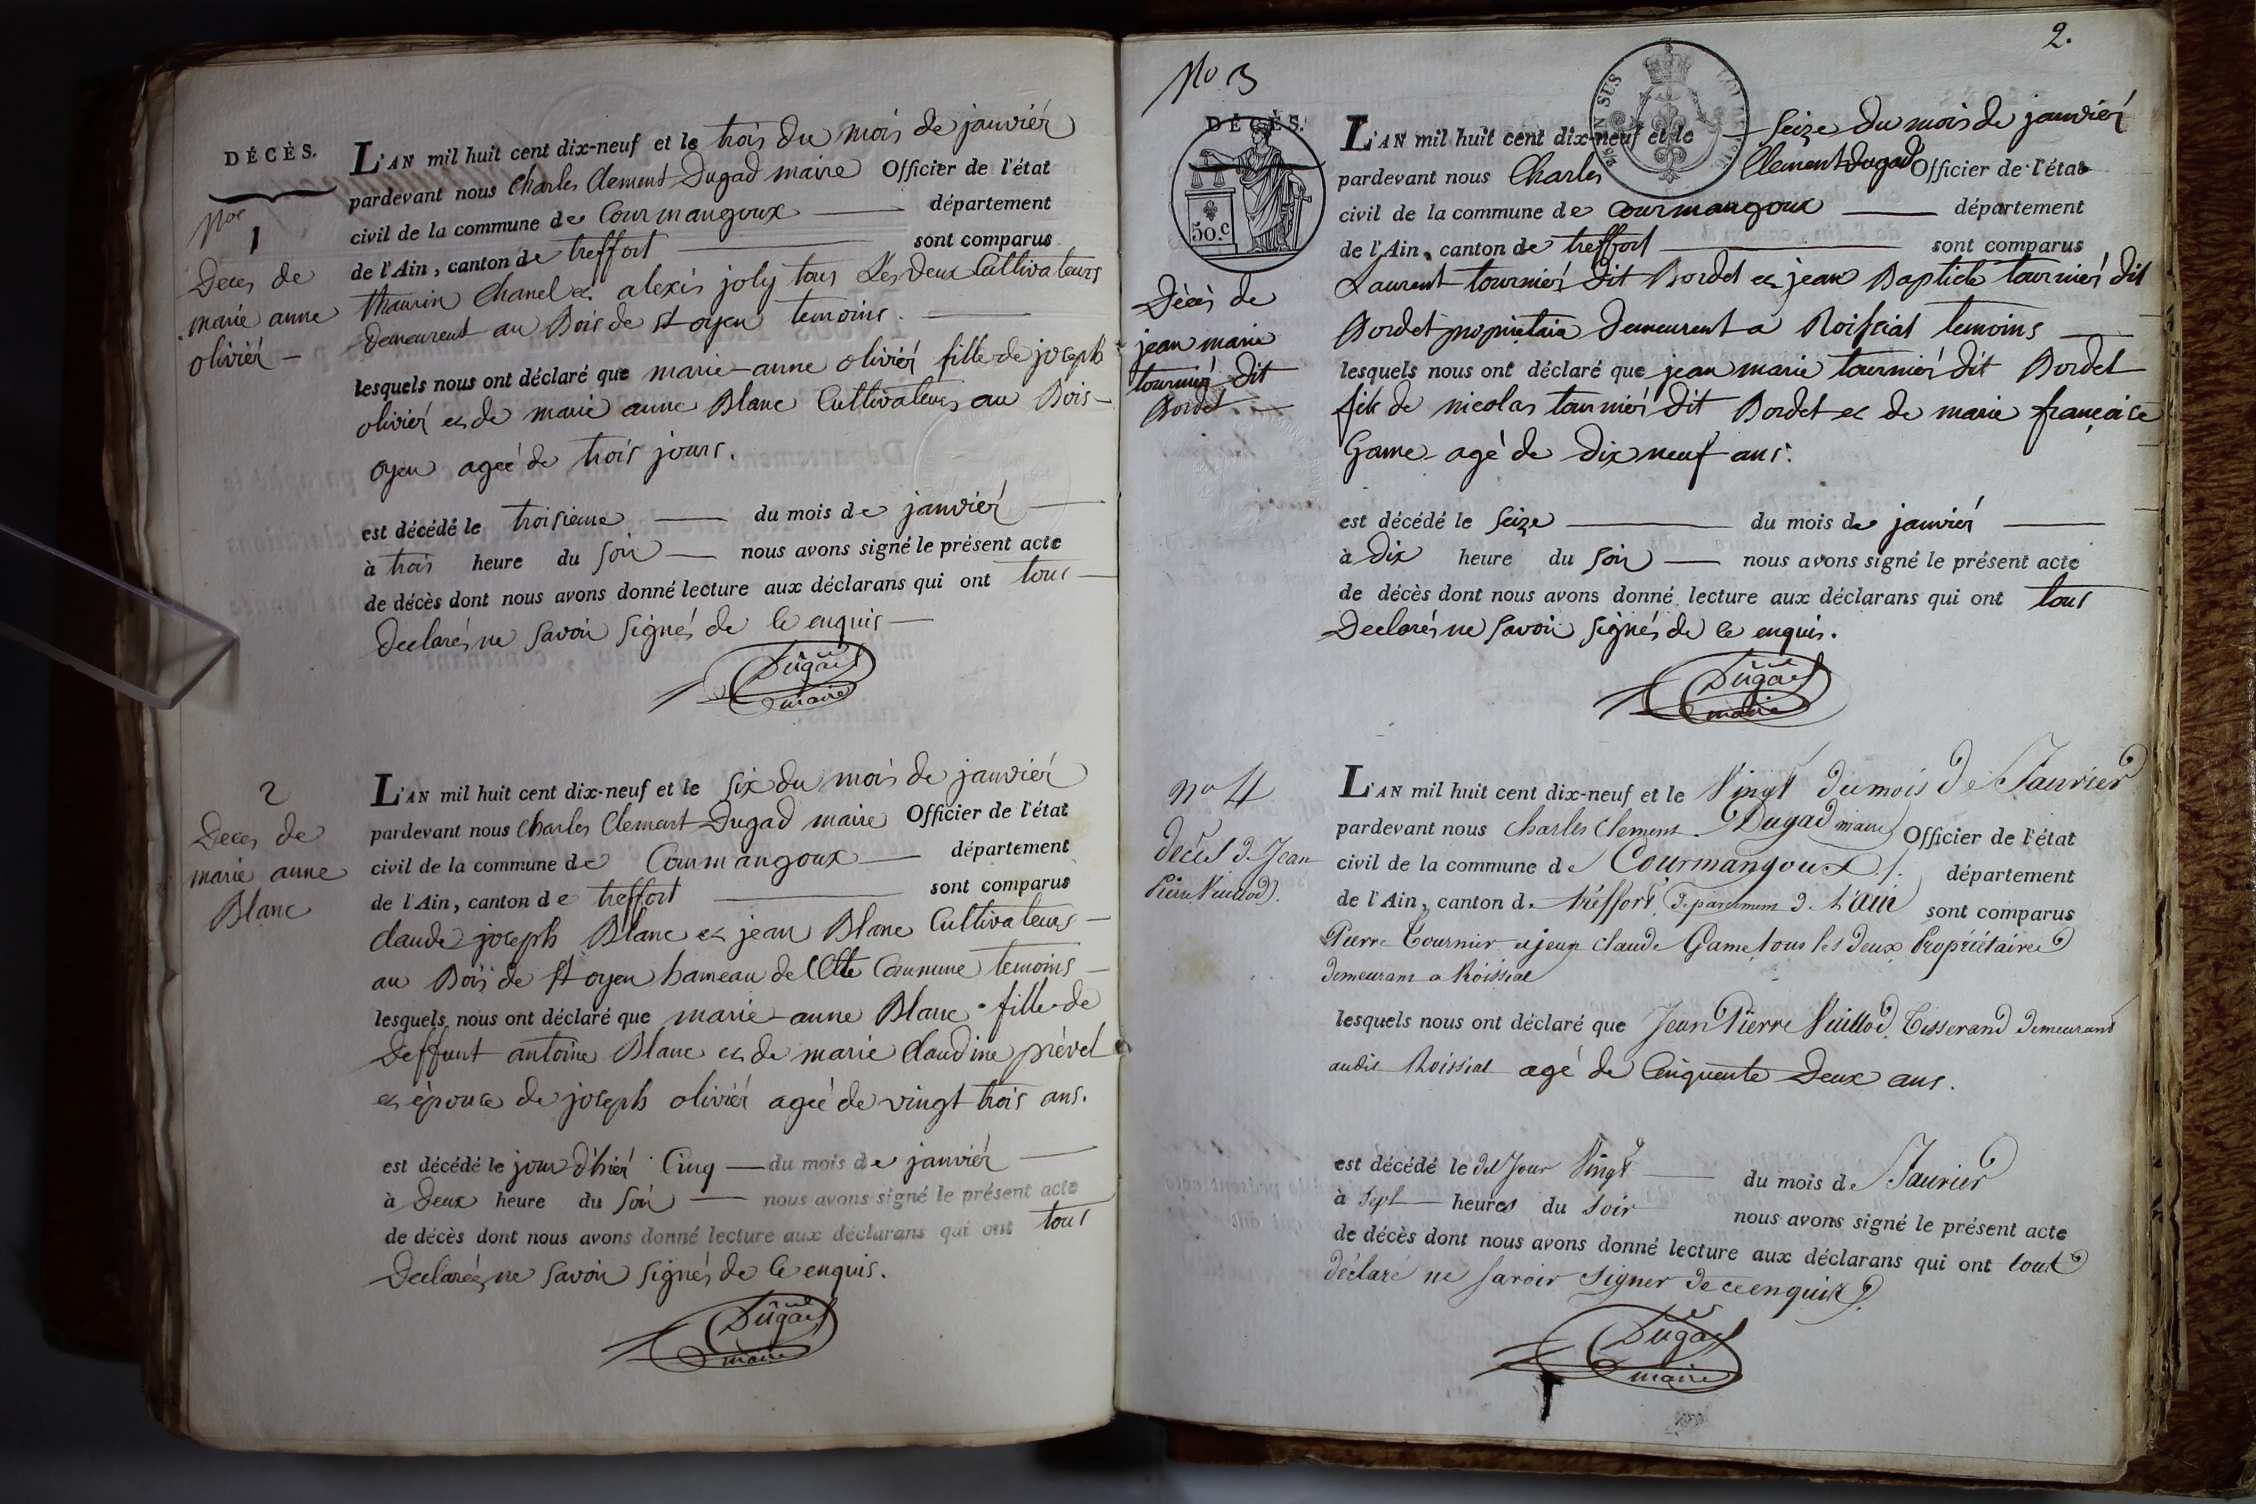 DÉCÈS.
Nor
1
Deces de
marie anne
olivier
L'AN mil huit cent dix-neuf et le trois du mois de janvier
pardevant nous Charles Clement Dugad maire Officier de l'état
civil de la commune de Courmangoux département
de l'Ain, canton de treffort sont comparus
Chanel et alexis joly tous Les deux Cultivateurs
demeurent au Bois de st oyen temoins.
lesquels nous ont déclaré que marie anne olivier fille de joseph
olivier et de marie anne Blanc Cultivateurs au Bois
oyen ageé de trois jours.
est décédé le troisieme du mois de janvier
à trois heure du soir nous avons signé le présent acte
de décès dont nous avons donné lecture aux déclarans qui ont tous
Declarés ne savoir signés de ce enquis
Dugad
maire
2
Deces de
marie anne
Blanc
L'AN mil huit cent dix-neuf et le six du mois de janvier
pardevant nous Charles Clement Dugad maire Officier de l'état
civil de la commune de Courmangoux département
de l'Ain, canton de treffort sont comparus
claude joseph Blanc et jean Blanc Cultivateurs
au Bois de st oyen hameau de Cette Commune temoins
lesquels nous ont déclaré que marie anne Blanc fille de
Deffunt antoine Blanc et de marie Claudine prévet
et épouse de joseph olivier ageé de vingt trois ans.
est décédé le jour d'hier Cinq du mois de janvier
à Deux heure du soir nous avons signé le présent acte
de décès dont nous avons donné lecture aux déclarans qui ont tous
Declarés ne savoir signés de ce enquis.
Dugad
maire
2.
No 3
DÉCÈS.
50.c
Décès de
jean marie
tournier dit
Bordet
L'AN mil huit cent dix-neuf et le seize du mois de janvier
pardevant nous Charles Clement Dugad Officier de l'état
civil de la commune de Courmangoux département
de l'Ain, canton de treffort sont comparus
Laurent tournier dit Bordet et jean Baptiste tournier dit
Bordet proprietaire demeurent a Roissiat temoins
lesquels nous ont déclaré que jean marie tournier dit Bordet
fils de nicolas tournier dit Bordet et de marie françoise
Game agé de dix neuf ans.
est décédé le seize du mois de janvier
à dix heure du soir nous avons signé le présent acte
de décès dont nous avons donné lecture aux déclarans qui ont tous
Declarés ne savoir signés de ce enquis.
Dugad
maire
no 4
décès de Jean
Pierre Vuillod.
L'AN mil huit cent dix-neuf et le Vingt du mois de Janvier
pardevant nous Charles Clement Dugad maire Officier de l'état
civil de la commune de Courmangoux département
de l'Ain, canton de tréffort, département de l'ain sont comparus
Pierre Tournier et jean claude Game tous les deux Propriétaires
demeurans a Roissiat
lesquels nous ont déclaré que Jean Pierre Vuillod Tisserand demeurant
audit Roissiat agé de Cinquente Deux ans.
est décédé le dit Jour Vingt du mois de Janvier
à sept heures du soir nous avons signé le présent acte
de décès dont nous avons donné lecture aux déclarans qui ont tout
déclaré ne savoir signer de ce enquis.
Dugad
maire